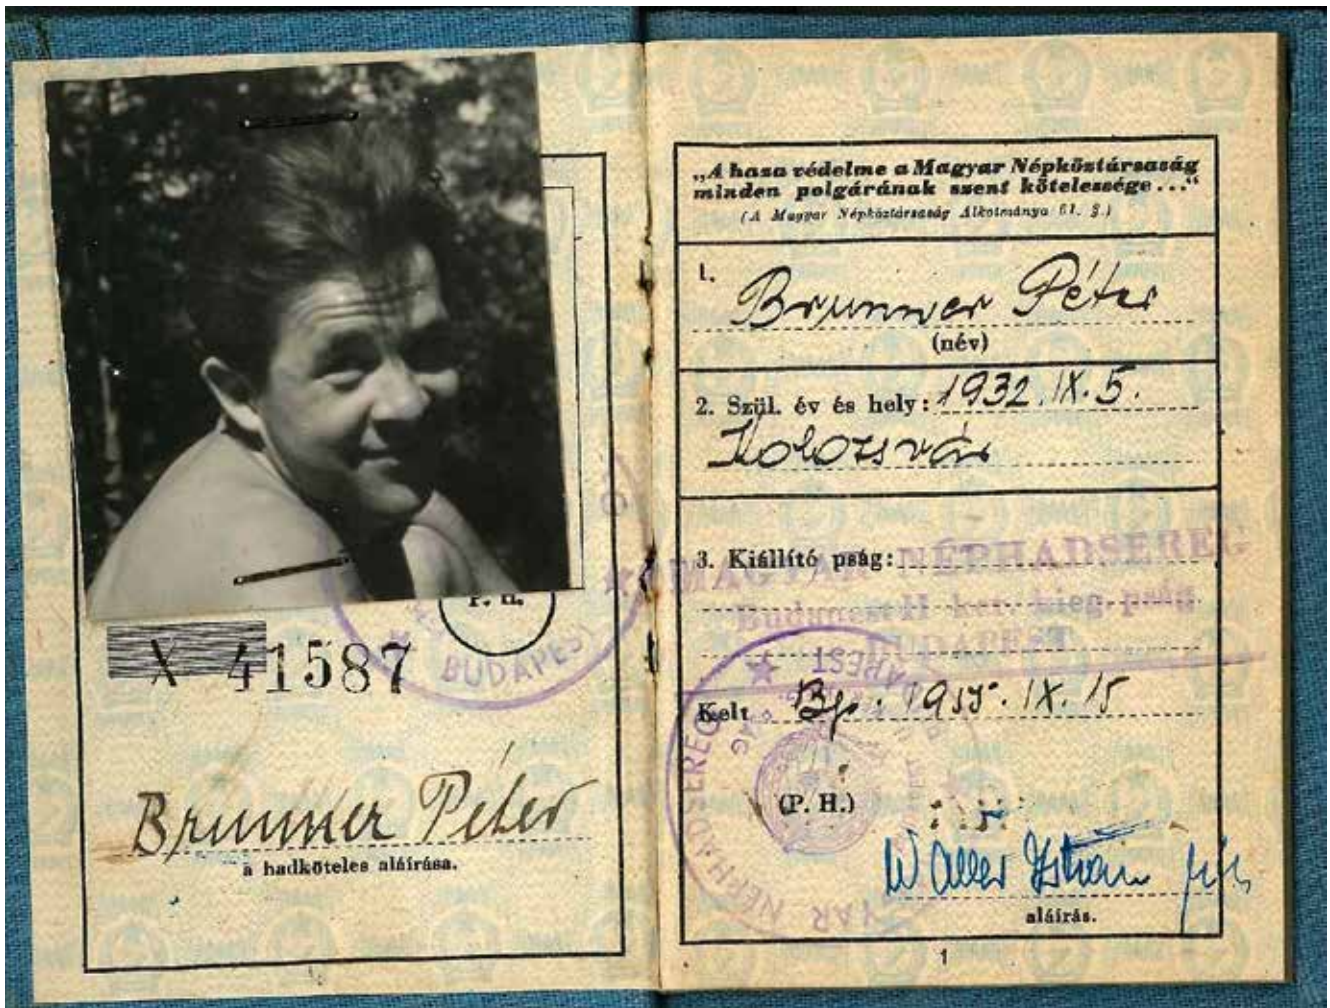 P. H.
BUDAPEST
X 41587
Brunner Péter
a hadköteles aláírása.
„A haza védelme a Magyar Népköztársaság
minden polgárának szent kötelessége..."
(A Magyar Népköztársaság Alkotmánya 61. §.)
1. Brunner Péter
(név)
2. Szül. év és hely: 1932. IX. 5.
Kolozsvár
3. Kiállító pság: MAGYAR NÉPHADSEREG
Budapest II. ker. kieg. pság
BUDAPEST
Kelt Bp. 1955. IX. 15
(P. H.)
Waller István
aláírás.
1